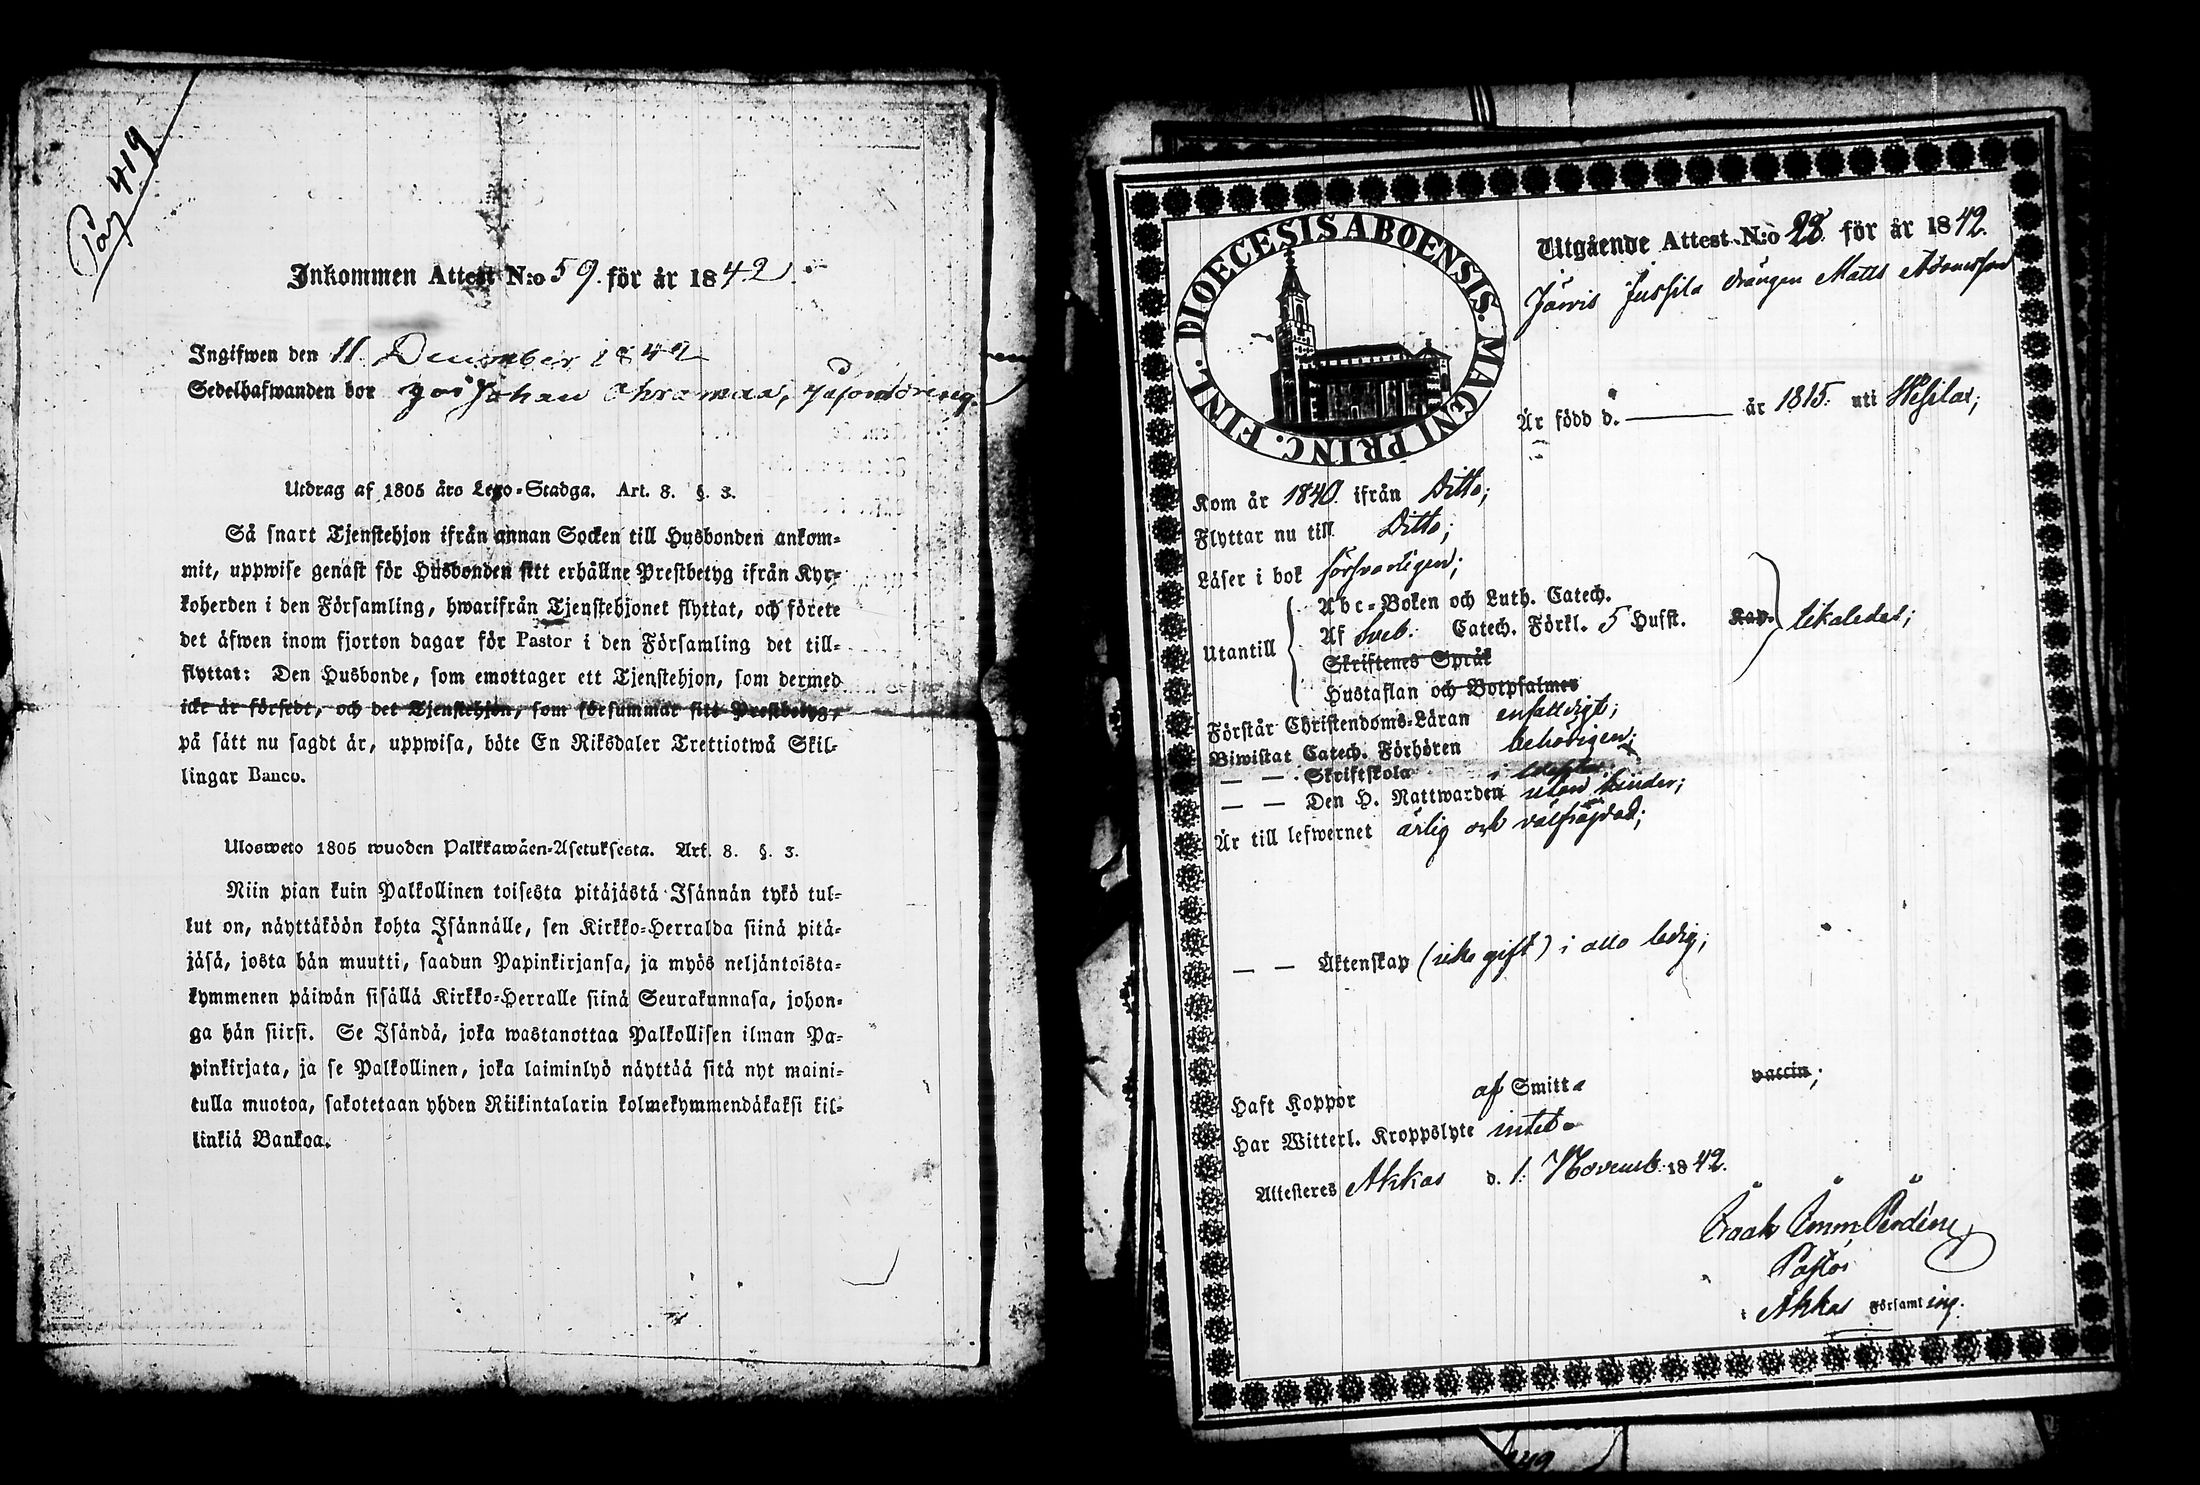 Pag 419
Inkommen Attest N:o 59. för år 1842.
Ingifwen den 11 December 1842
Sedelhafwanden bor Johan
Utdrag af 1805 års Lego-Stadga. Art. 8. §. 3.
Så snart Tjenstehjon ifrån annan Socken till Husbonden ankom-
mit, uppwise genast för Husbonden sitt erhållne Prestbetyg ifrån Kyr-
koherden i den Församling, hwarifrån Tjenstehjonet flyttat, och förete
det äfwen inom fjorton dagar för Pastor i den Församling det till-
flyttat: Den Husbonde, som emottager ett Tjenstehjon, som dermed
icke är försedt, och det Tjenstehjon, som försummar sitt Prestbetyg,
på sätt nu sagdt är, uppwisa, böte En Riksdaler Trettiotwå Skil-
lingar Banco.
Ulosweto 1805 wuoden Palkkawäen-Asetuksesta. Art. 8. §. 3.
Niin pian kuin Palkollinen toisesta pitäjästä Isännän tykö tul-
lut on, näyttäköön kohta Isännälle, sen Kirkko-Herralda siinä pitä-
jäsä, josta hän muutti, saadun Papinkirjansa, ja myös neljäntoista-
kymmenen päiwän sisällä Kirkko-Herralle siinä Seurakunnasa, johon-
ga hän siirsi. Se Isändä, joka wastanottaa Palkollisen ilman Pa-
pinkirjata, ja se Palkollinen, joka laiminlyö näyttää sitä nyt maini-
tulla muotoa, sakotetaan yhden Riikintalarin kolmekymmendäkaksi kil-
linkiä Bankoa.
DIOECESIS ABOENSIS. MAGNI PRINC. FINL.
Utgående Attest N:o 28. för år 1842.
Järvis Jussila drängen Matts Adamsson
Är född d. — år 1815. uti Wesilax;
Kom år 1840. ifrån Ditto;
Flyttar nu till Ditto;
Läser i bok försvarligen;
Utantill
Abc-Boken och Luth. Catech.
Af Sveb. Catech. Förkl. 5 Husst. Kap. likaledes;
Skriftenes Språk
Hustaflan och Botpsalmer
Förstår Christendoms-Läran enfaldigt;
Biwistat Catech. Förhören behörigen;
— — Skriftskola
— — Den H. Nattwarden utan hinder;
Är till lefwernet ärlig och välfräjdad;
— — Äktenskap (icke gift) i allo ledig;
Haft Koppor af Smitta vaccin;
Har Witterl. Kroppslyte intet
Attesteres Akkas d. 1. Novemb. 1842.
Pastor
i Akkas Församling.